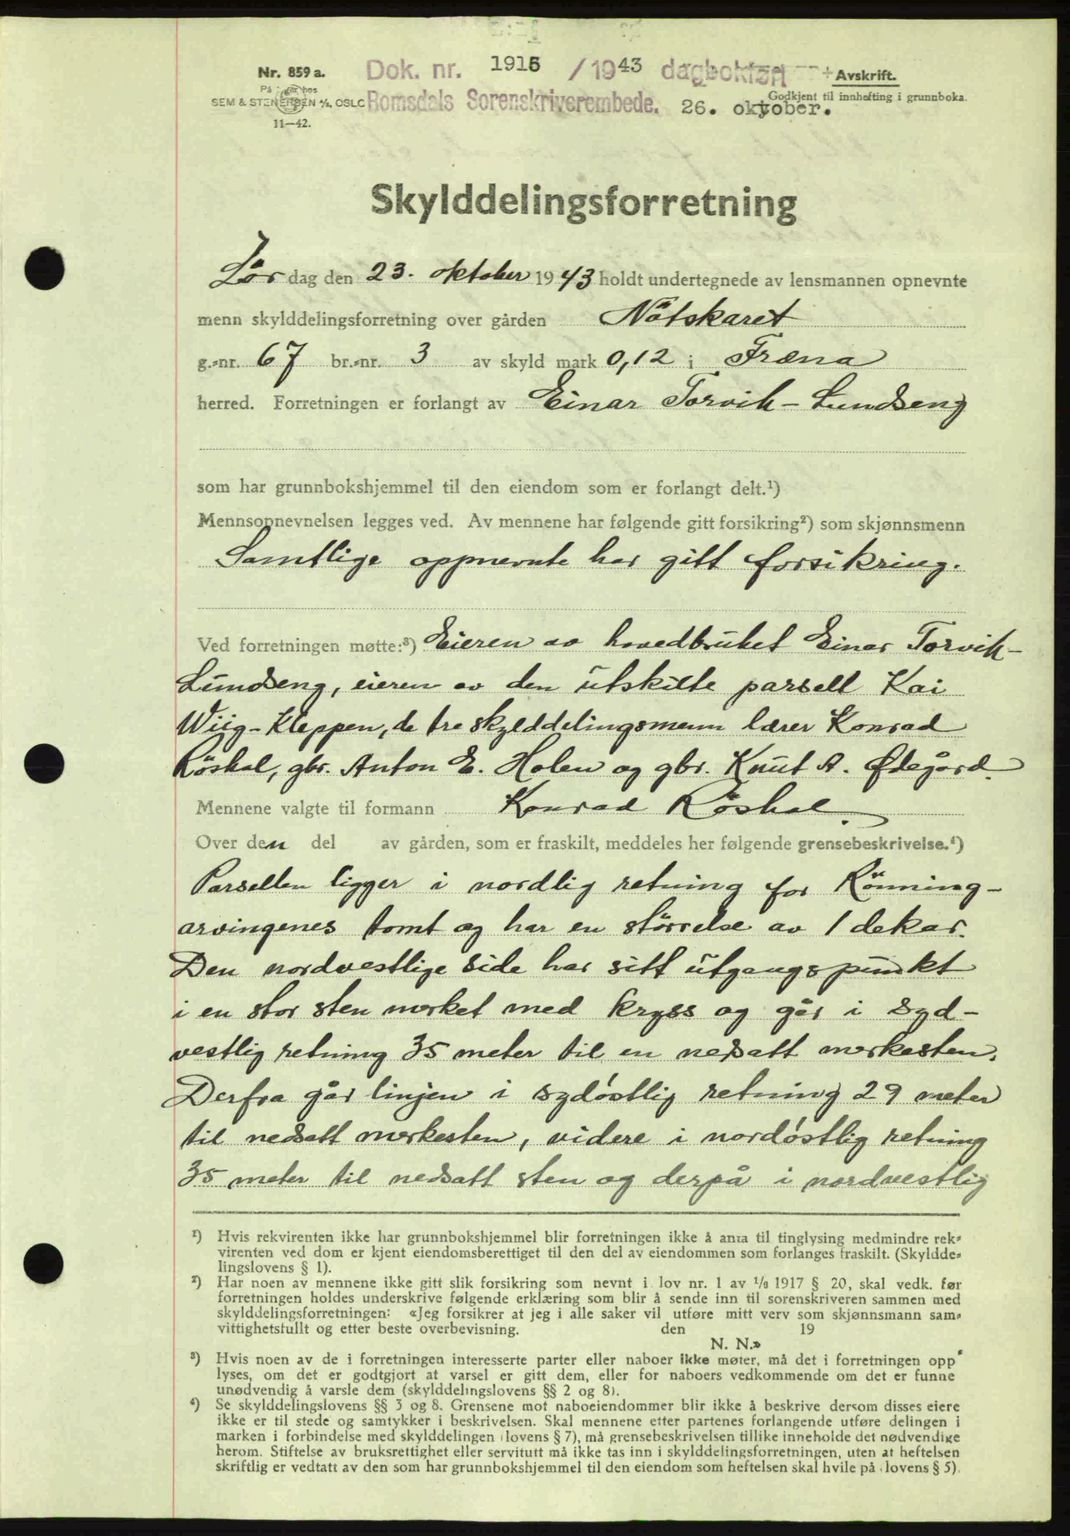 Nr. 859 a.
På lager hos
SEM & STENERSEN A/S, OSLO
11—42.
Dok. nr. 1915 / 1943 dagbokført
Romsdals Sorenskriverembede. 26. oktober.
Avskrift.
Godkjent til innhefting i grunnboka.
Skylddelingsforretning
Lör dag den 23. oktober 1943 holdt undertegnede av lensmannen opnevnte
menn skylddelingsforretning over gården Nötskaret
g.-nr. 67 br.-nr. 3 av skyld mark 0,12 i Fræna
herred. Forretningen er forlangt av Einar Torvik-Lundseng
som har grunnbokshjemmel til den eiendom som er forlangt delt.¹)
Mennsopnevnelsen legges ved. Av mennene har følgende gitt forsikring²) som skjønnsmenn
Samtlige oppnevnte har gitt forsikring.
Ved forretningen møtte:³) Eieren av hovedbruket Einar Torvik-
Lundseng, eieren av den utskilte parsell Kai
Wiig-Kleppen, de tre skylddelingsmenn lærer Konrad
Röshol, gbr. Anton E. Holen og gbr. Knut A. Ødegård.
Mennene valgte til formann Konrad Röshol.
Over den del av gården, som er fraskilt, meddeles her følgende grensebeskrivelse.⁴)
Parsellen ligger i nordlig retning for Rönning-
arvingenes tomt og har en störrelse av 1 dekar.
Den nordvestlige side har sitt utgangspunkt
i en stor sten merket med kryss og går i syd-
vestlig retning 35 meter til en nedsatt merkesten.
Derfra går linjen i sydóstlig retning 29 meter
til nedsatt merkesten, videre i nordóstlig retning
35 meter til nedsatt sten og derpå i nordvestlig
¹) Hvis rekvirenten ikke har grunnbokshjemmel blir forretningen ikke å anta til tinglysing medmindre rek-
virenten ved dom er kjent eiendomsberettiget til den del av eiendommen som forlanges fraskilt. (Skyldde-
lingslovens § 1).
²) Har noen av mennene ikke gitt slik forsikring som nevnt i lov nr. 1 av 1/8 1917 § 20, skal vedk. før
forretningen holdes underskrive følgende erklæring som blir å sende inn til sorenskriveren sammen med
skylddelingsforretningen: «Jeg forsikrer at jeg i alle saker vil utføre mitt verv som skjønnsmann sam-
vittighetsfullt og etter beste overbevisning. den 19
N. N.»
³) Hvis noen av de i forretningen interesserte parter eller naboer ikke møter, må det i forretningen opp
lyses, om det er godtgjort at varsel er gitt dem, eller for naboers vedkommende om det er funne
unødvendig å varsle dem (skylddelingslovens §§ 2 og 8).
⁴) Se skylddelingslovens §§ 3 og 8. Grensene mot naboeiendommer blir ikke å beskrive dersom disses eiere
ikke er til stede og samtykker i beskrivelsen. Skal mennene etter partenes forlangende utføre delingen i
marken i forbindelse med skylddelingen (lovens § 7), må grensebeskrivelsen tillike inneholde det nødvendige
herom. Stiftelse av bruksrettighet eller servitutt må ikke tas inn i skylddelingsforretningen, uten at heftelsen
skriftlig er vedtatt av den som har grunnbokshjemmel til den eiendom som heftelsen skal hvile på (lovens § 5).